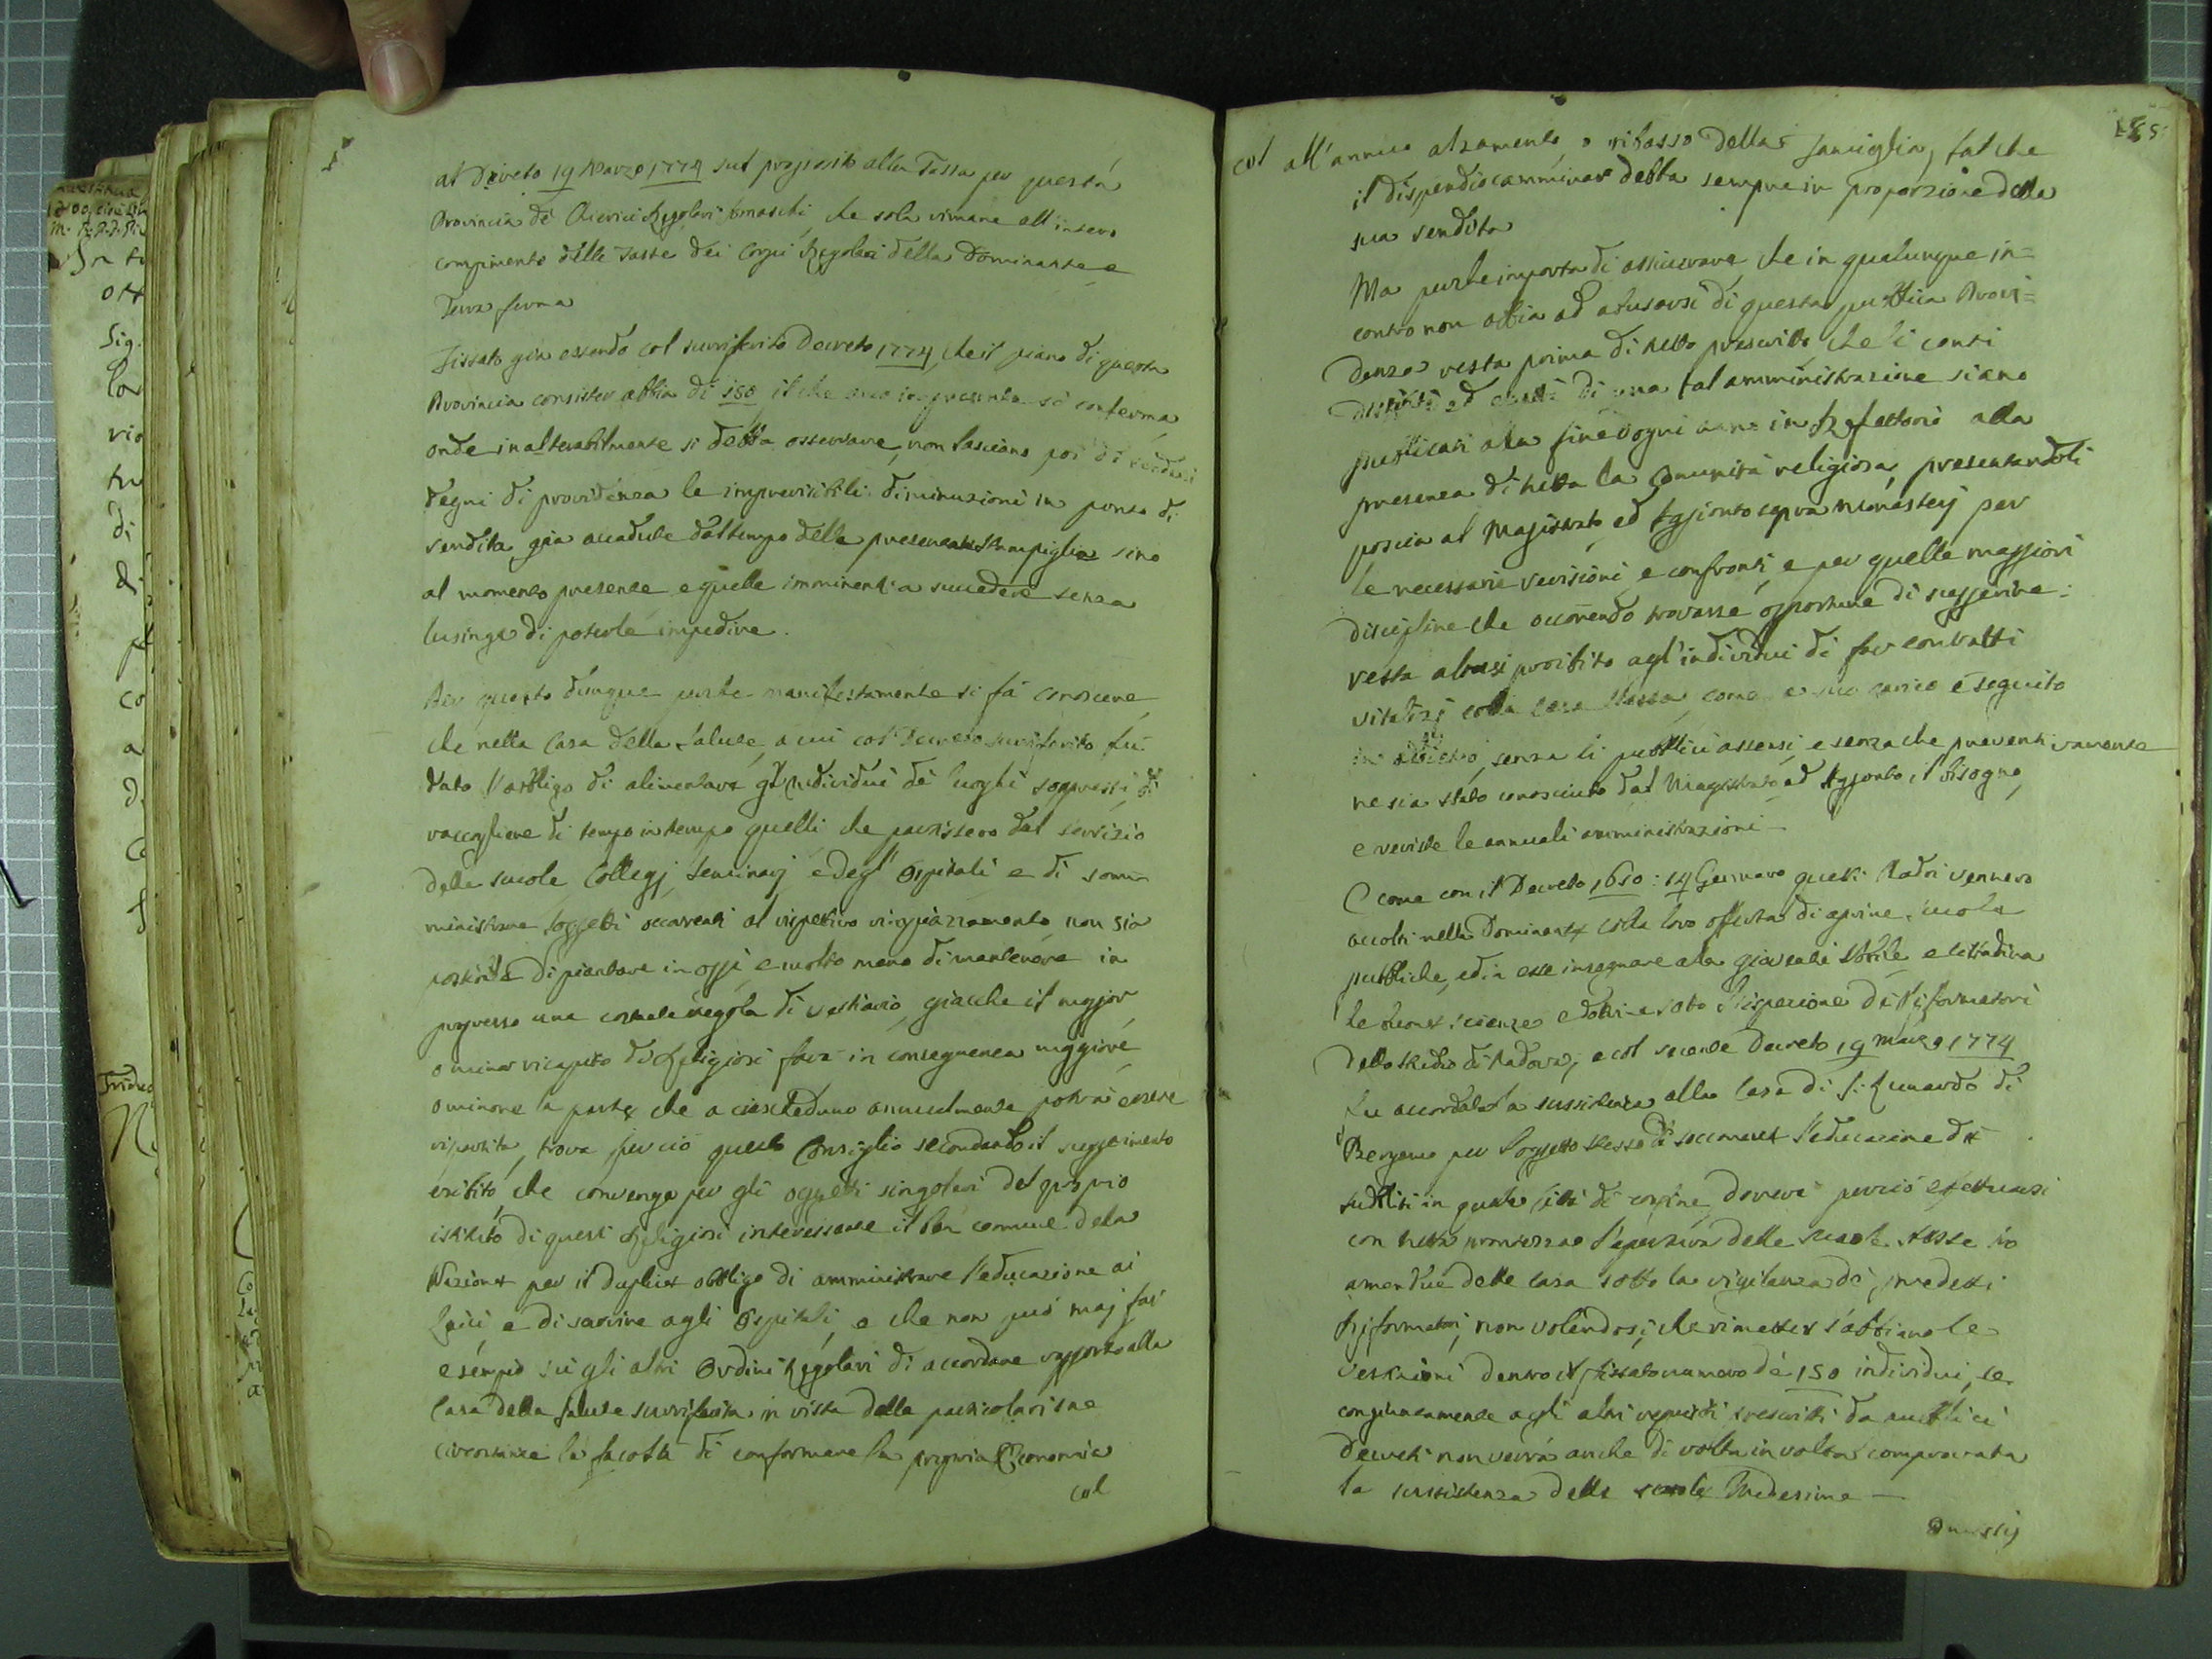 al Decreto 19 Marzo 1774 sul proposito alla Tassa per questa
Provincia de Chierici Regolari Somaschi, che sola rimane all'intero
compimento delle Tasse dei Corpi Regolari della Dominante e
Terra ferma
Fissato già essendo col surriferito Decreto 1774, che il piano di questa
Provincia consister abbia di 150 il che anco in presente si conferma
onde inalterabilmente si debba osservare, non lasciano poi di rendersi
degni di providenza le imprevisibili diminuzioni in ponto di
rendita già accadute dal tempo della presente stampiglia sino
al momento presente e quelle imminenti a succedere senza
lusinga di poterle impedire.
Per questo dunque perche manifestamente si fà conoscere
che nella Casa della Salute, a cui col Decreto surriferito fu
dato l'obbligo di alimentare gl'Individui de luoghi soppressi, di
raccogliere di tempo in tempo quelli che partissero dal servizio
delle scuole Collegj Seminarj e degl'Ospitali e di som-
ministrare soggetti occorrenti al rispettivo rimpiazzamento non sia
possibile di piantare in oggi e molto meno di mantenere in
progresso una costante regola di vestiario, giacche il maggior
o minor ricapito de Religiosi farà in conseguenza maggiore
o minore la parte che a ciascheduno annualmente potrà essere
ripartita, trova perciò questo Consiglio secondando il suggerimento
esibito che convenga per gli oggetti singolari del proprio
istituto di questi Religiosi interessante il ben comune della
Nazione per il duplice obbligo di amministrare l'educazione ai
Laici e di servire agli Ospitali, e che non può maj far
esempio sù gli altri Ordini Regolari di accordare rapporto alla
Casa della Salute surriferita in vista delle particolari sue
circostanze la facoltà di conformare la propria Economia
col
185
col all'annuo alzamento o ribasso della famiglia, tal che
il dispendio camminar debba sempre in proporzione della
sua rendita
Ma perche importa di assicurare, che in qualunque in=
contro non abbia ad abusarsi di questa pubblica Provi=
denza resta prima di tutto prescritto che li conti
distinti ed esatti di una tal amministrazione siano
pubblicati alla fine d'ogni anno in Refettorio alla
presenza di tutta la Comunità religiosa, presentandoli
poscia al Magistrato ed Aggionto sopra Monasterj per
le necessarie revisioni, e confronti, e per quelle maggiori
discipline che occorrendo trovasse opportune di suggerire:
resta altresi proibito agl'individui di far contratti
vitalizj colla Casa stessa, come a suo carico è seguito
in addietro, senza li pubblici assensi, e senza che preventivamente
ne sia stato conosciuto dal Magistrato ed Aggionto il bisogno,
e reviste le annuali amministrazioni —
E come con il Decreto 1650: 14 Gennaro questi Padri vennero
accolti nella Dominante colla loro offerta di aprire scuole
pubbliche, ed in esse insegnare alla gioventù Nobile e cittadina
le buone scienze e dottrine sotto l'ispezione de Riformatori
dello studio di Padova; e col recente Decreto 19 Marzo 1774
fu accordata la sussistenza alla Casa di S. Leonardo di
Bergamo per l'oggetto stesso di soccorrer l'educazione de
sudditi in quella Città di confine, dovrà perciò effettuarsi
con tutta prontezza l'apertura delle scuole stesse in
amendue dette Case sotto la vigilanza de predetti
Riformatori, non volendosi che rimetter s'abbiano le
vestizioni dentro il fissato numero de 150 individui, se
congiuntamente agli altri requisiti prescritti da pubblici
Decreti non verrà anche di volta in volta comprovata
la sussistenza delle scuole medesime —